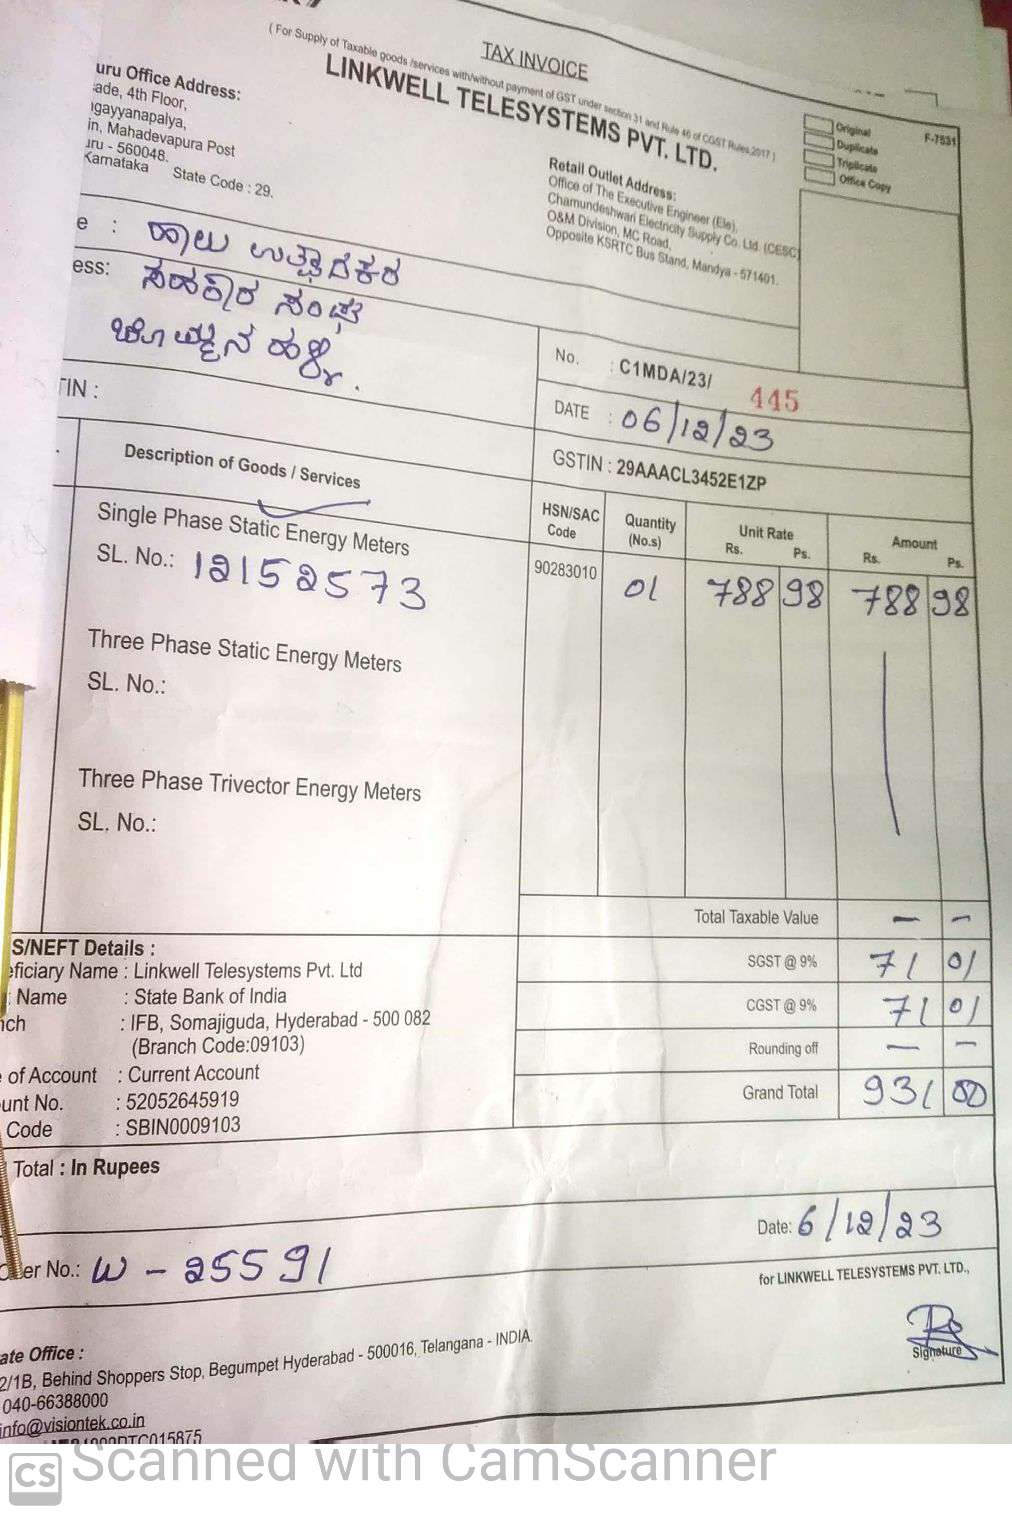 TAX INVOICE
( For Supply of Taxable goods /services with/without payment of GST under section 31 and Rule 46 of CGST Rules,2017 )
LINKWELL TELESYSTEMS PVT. LTD.
uru Office Address:
ade, 4th Floor,
gayyanapalya,
in, Mahadevapura Post
uru - 560048.
Karnataka State Code : 29.
Retail Outlet Address:
Office of The Executive Engineer (Ele),
Chamundeshwari Electricity Supply Co. Ltd. (CESC)
O&M Division, MC Road,
Opposite KSRTC Bus Stand, Mandya - 571401.
Original
Duplicate
Triplicate
Office Copy
F-7531
e : ಹಾಲು ಉತ್ಪಾದಕರ
ess: ಸಹಕಾರ ಸಂಘ
ಹಳ್ಳಿ.
TIN :
No. : C1MDA/23/ 445
DATE : 06/12/23
GSTIN : 29AAACL3452E1ZP
Description of Goods / Services
HSN/SAC Code
Quantity (No.s)
Unit Rate Rs. Ps.
Amount Rs. Ps.
Single Phase Static Energy Meters
SL. No.: 12152573
90283010 01 788 98 788 98
Three Phase Static Energy Meters
SL. No.:
Three Phase Trivector Energy Meters
SL. No.:
Total Taxable Value — –
SGST @ 9% 71 01
CGST @ 9% 71 01
Rounding off — –
Grand Total 931 00
S/NEFT Details :
eficiary Name : Linkwell Telesystems Pvt. Ltd
Name : State Bank of India
nch : IFB, Somajiguda, Hyderabad - 500 082
(Branch Code:09103)
of Account : Current Account
unt No. : 52052645919
Code : SBIN0009103
Total : In Rupees
Date: 6/12/23
er No.: W - 25591
for LINKWELL TELESYSTEMS PVT. LTD.,
Signature
ate Office :
2/1B, Behind Shoppers Stop, Begumpet Hyderabad - 500016, Telangana - INDIA.
040-66388000
info@visiontek.co.in
CS Scanned with CamScanner